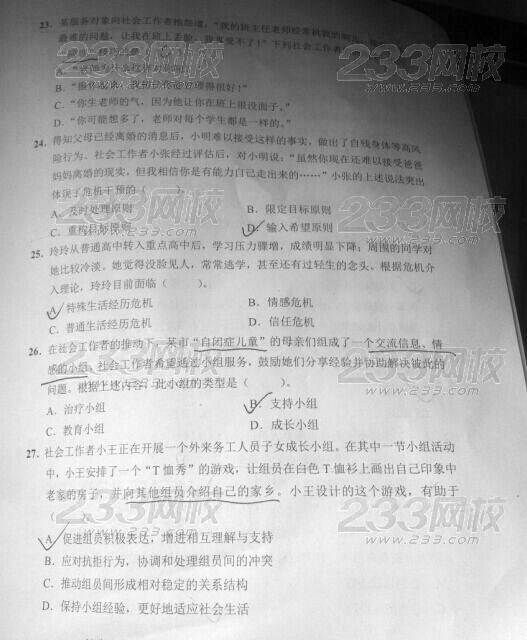 23. 某服务对象向社会工作者抱怨道，“我的班主任老师经常挑我的
最难的问题，让我在班上丢脸，我真受不了！”下列社会工作者
B. “你在
处理得很好！”
C. “你生老师的气，因为他让你在班上很没面子。”
D. “你可能想多了，老师对每个学生都是一样的。”
24. 得知父母已经离婚的消息后，小明难以接受这样的事实，做出了自残身体等高风
险行为。社会工作者小张经过评估后，对小明说：“虽然你现在还难以接受爸爸
妈妈离婚的现实，但我相信你是有能力自己走出来的……”小张的上述说法突出
体现了危机干预的（ ）。
A. 及时处理原则
B. 限定目标原则
C. 重构目标原则
D. 输入希望原则
25. 玲玲从普通高中转入重点高中后，学习压力骤增，成绩明显下降；周围的同学对
她比较冷淡。她觉得没脸见人，常常逃学，甚至还有过轻生的念头。根据危机介
入理论，玲玲目前面临（ ）。
A. 特殊生活经历危机
B. 情感危机
C. 普通生活经历危机
D. 信任危机
26. 在社会工作者的推动下，某市“自闭症儿童”的母亲们组成了一个交流信息、情
感的小组。社会工作者希望通过小组服务，鼓励她们分享经验并协助解决彼此的
问题。根据上述内容，此小组的类型是（ ）。
A. 治疗小组
B. 支持小组
C. 教育小组
D. 成长小组
27. 社会工作者小王正在开展一个外来务工人员子女成长小组。在其中一节小组活动
中，小王安排了一个“T恤秀”的游戏，让组员在白色T恤衫上画出自己印象中
老家的房子，并向其他组员介绍自己的家乡。小王设计的这个游戏，有助于
（ ）
A. 促进组员积极表达，增进相互理解与支持
B. 应对抗拒行为，协调和处理组员间的冲突
C. 推动组员间形成相对稳定的关系结构
D. 保持小组经验，更好地适应社会生活
233网校
www.233.com